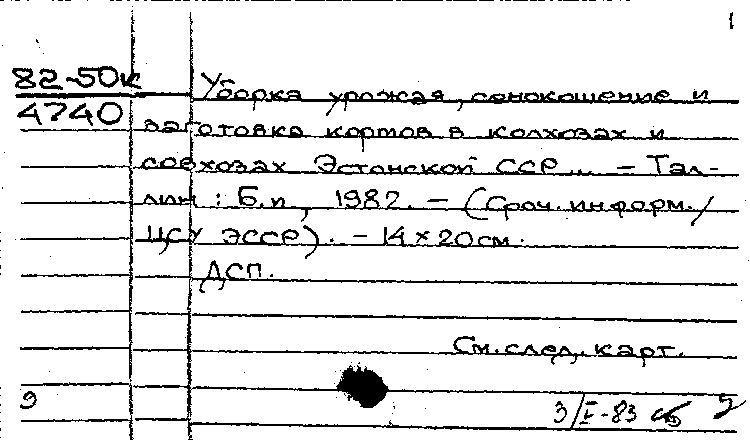 1
82-50к
4740
Уборка урожая, сенокошение и
заготовка кормов в колхозах и
совхозах Эстонской ССР... — Тал-
лин : Б.и., 1982. — (Сроч. информ./
ЦСУ ЭССР). — 14×20см.
ДСП.
См. след. карт.
9
3/I-83